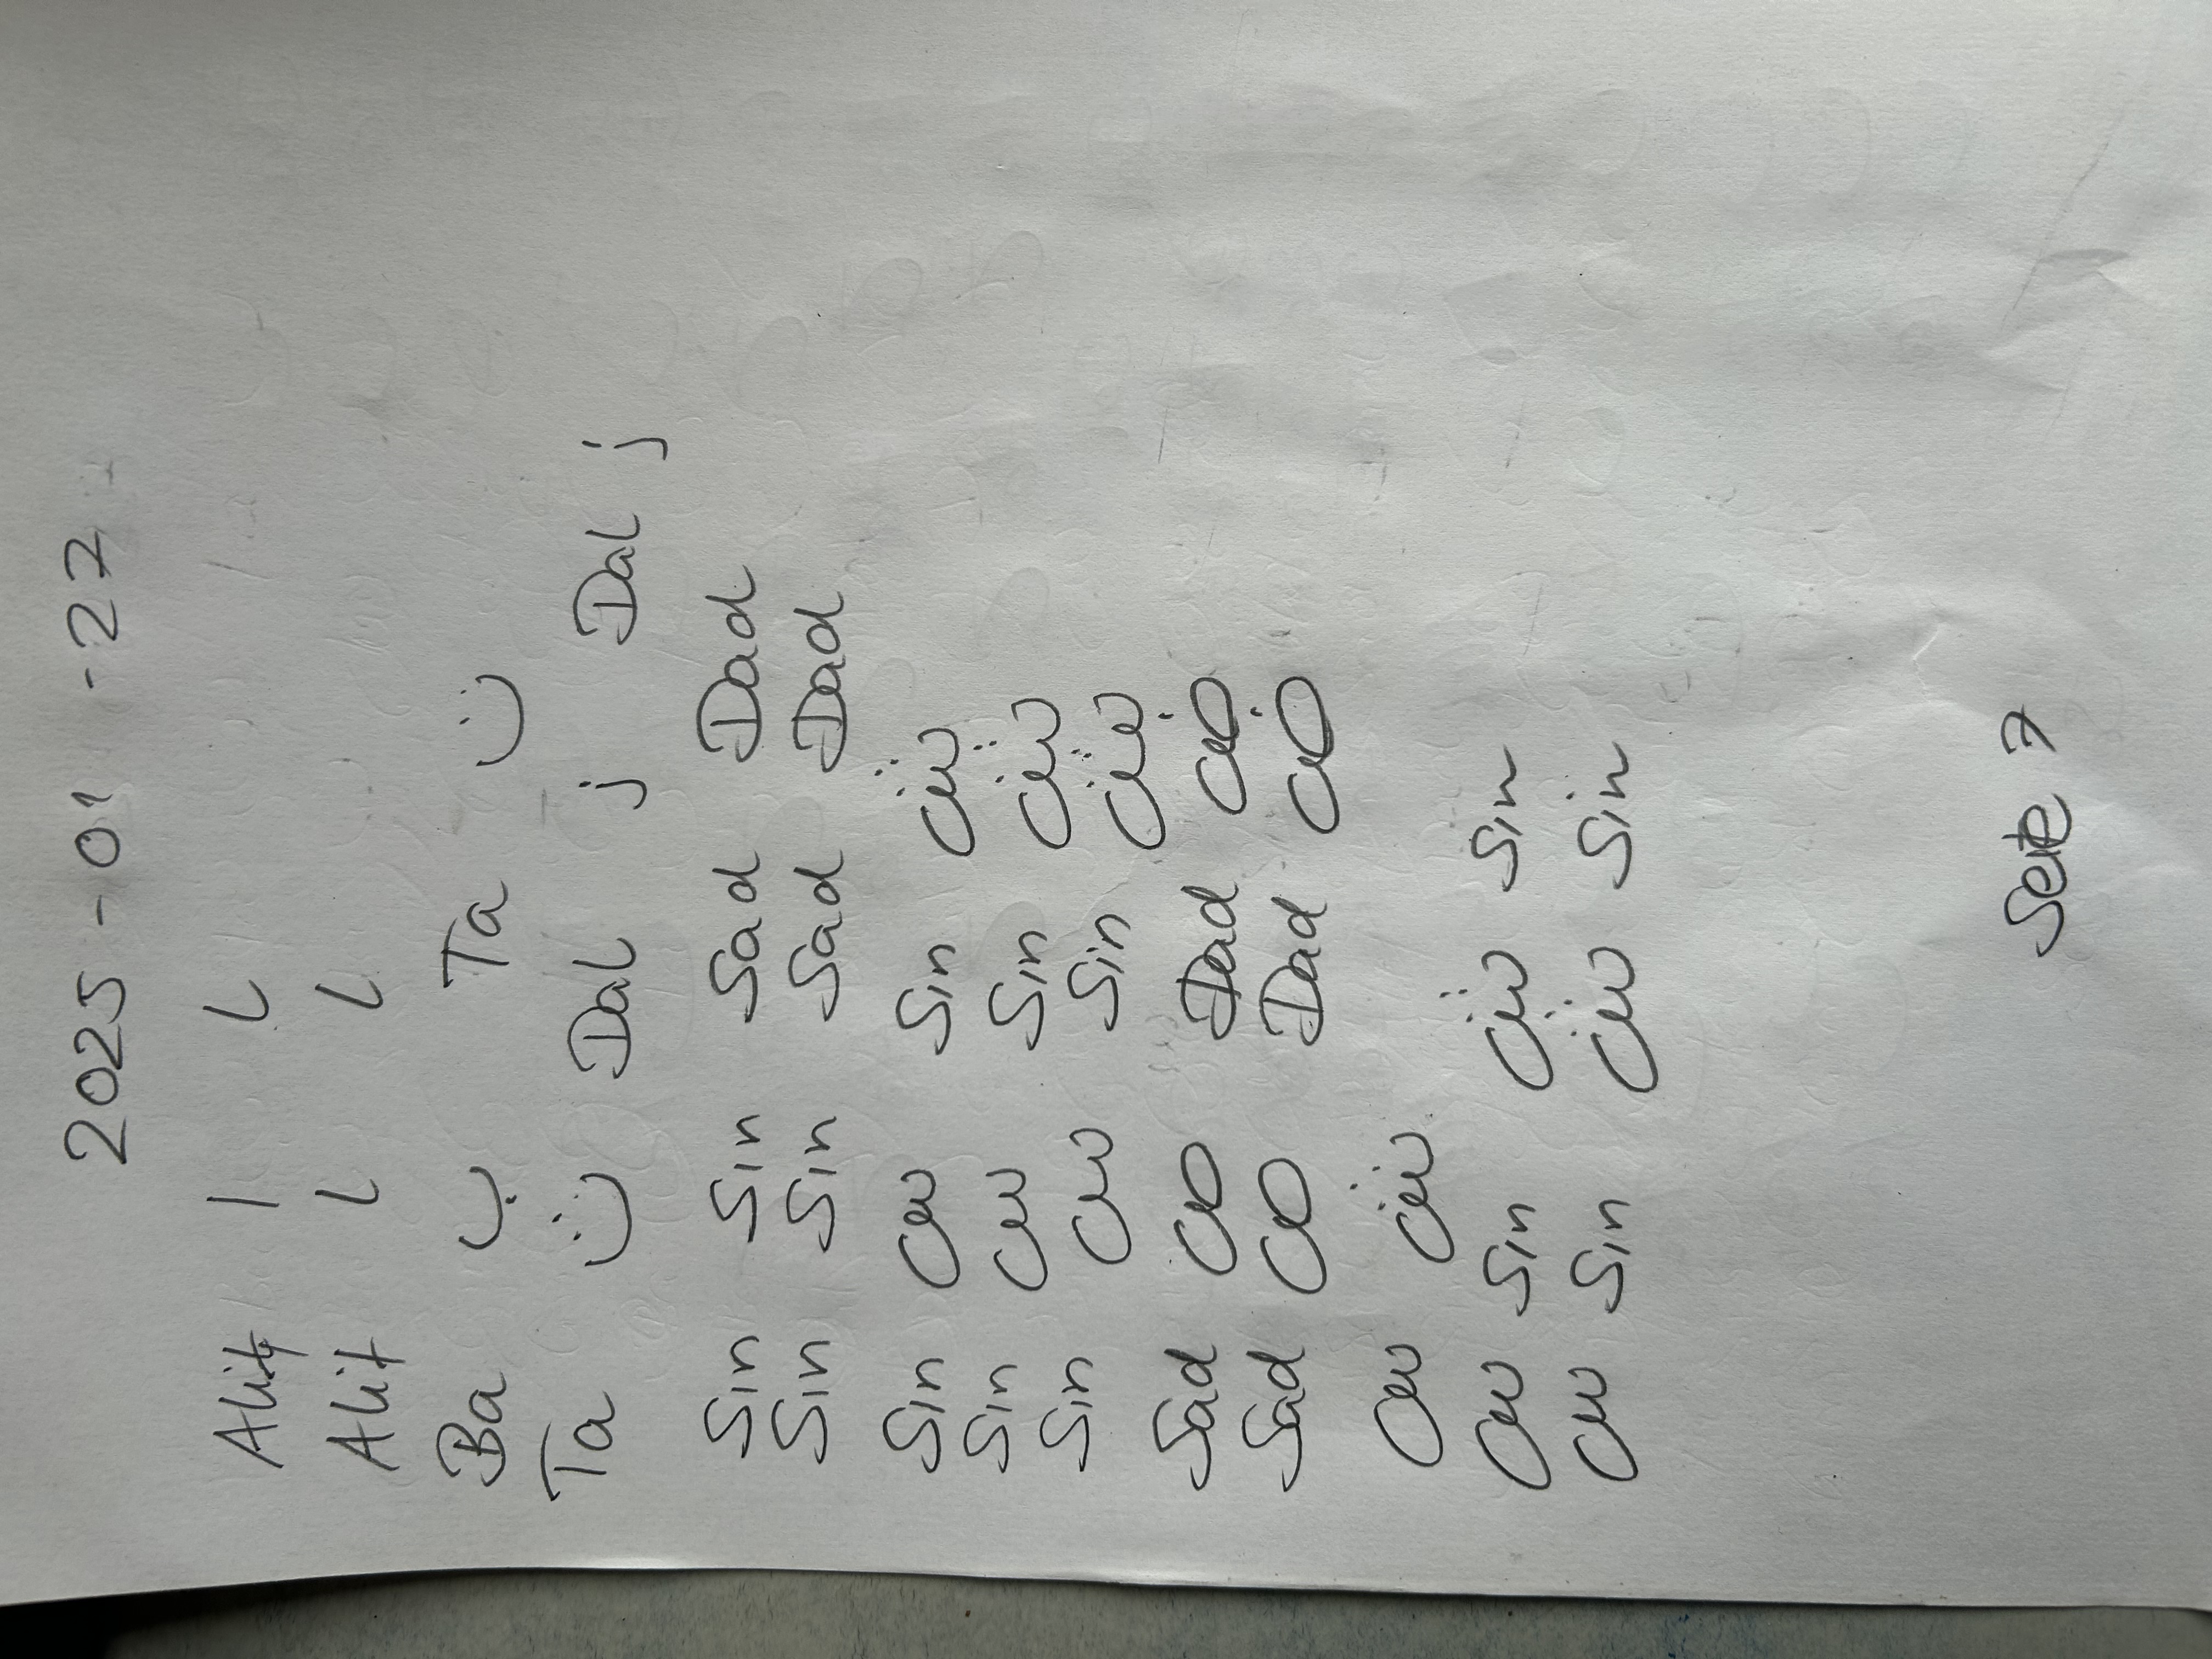 2025 - 01 - 27
Alif ا ا
Alif ا ا
Ba ب Ta ت
Ta ت Dal j Dal j
Sin Sin Sad Dad
Sin Sin Sad Dad
Sin س Sin ش
Sin س Sin ش
Sin س Sin ش
Sad ص Dad ض
Sad ص Dad ض
س ش
س Sin ش Sin
س Sin ش Sin
Seite 7